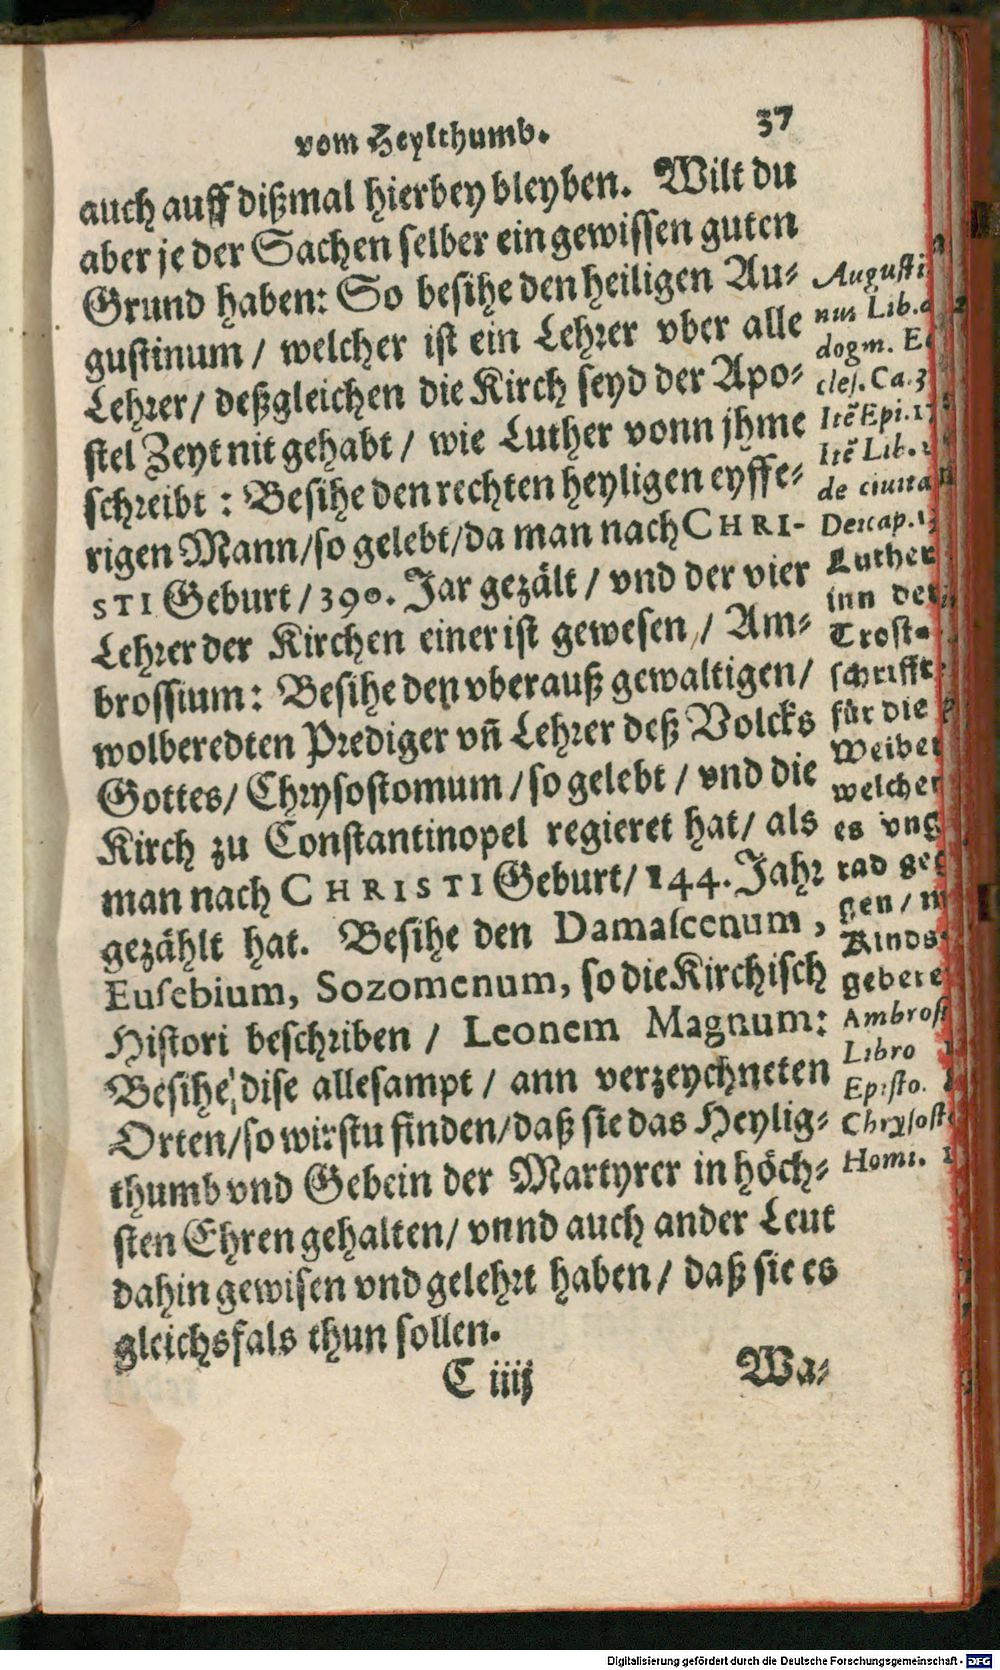 vom Heylthumb. 37
auch auff dißmal hierbey bleyben. Wilt du
aber je der Sachen selber ein gewissen guten
Grund haben: So besihe den heiligen Au-
gustinum / welcher ist ein Lehrer vber alle
Lehrer / deßgleichen die Kirch seyd der Apo-
stel Zeyt nit gehabt / wie Luther vonn jhme
schreibt : Besihe den rechten heyligen eyffe-
rigen Mann / so gelebt / da man nach CHRI-
STI Geburt / 390. Jar gezält / vnd der vier
Lehrer der Kirchen einer ist gewesen / Am-
brossium: Besihe den vberauß gewaltigen /
wolberedten Prediger vñ Lehrer deß Volcks
Gottes / Chrysostomum / so gelebt / vnd die
Kirch zu Constantinopel regieret hat / als
man nach CHRISTI Geburt / 144. Jahr
gezählt hat. Besihe den Damascenum ,
Eusebium, Sozomenum, so die Kirchisch
Histori beschriben / Leonem Magnum:
Besihe dise allesampt / ann verzeychneten
Orten / so wirstu finden / daß sie das Heylig-
thumb vnd Gebein der Martyrer in höch-
sten Ehren gehalten / vnnd auch ander Leut
dahin gewisen vnd gelehrt haben / daß sie es
gleichsfals thun sollen.
C iiij Wa-
Augusti
nus Lib.
dogm. E
cles. Ca. 3
Itẽ Epi. 17
Itẽ Lib.
de ciuita
Dei cap.
Luther
inn der
Trost-
schrifft
für die
Weiber
welcher
es vng
rad ge
gen /
Kinds
gebere
Ambros
Libro
Episto.
Chrysost
Homi.
Digitalisierung gefördert durch die Deutsche Forschungsgemeinschaft - DFG